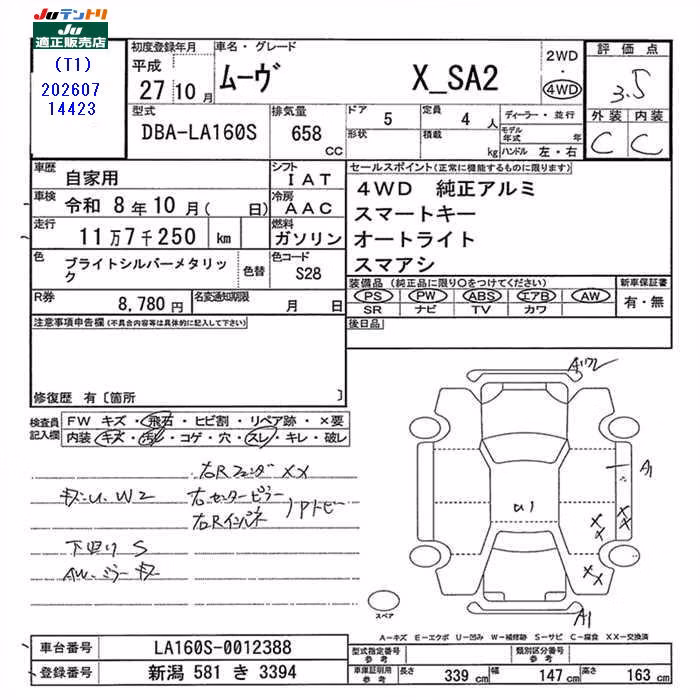 JUテントリ
JU
適正販売店
(T1)
202607
14423
初度登録年月
平成
27 10 月
車名・グレード
ムーヴ X_SA2
2WD
・
4WD
評価点
3.5
外装 内装
C C
型式
DBA-LA160S
排気量
658 CC
ドア 5
形状
定員 4 人
積載 kg
ディーラー・並行
モデル年式 年
ハンドル 左・右
車歴
自家用
シフト
IAT
車検 令和 8年10月( 日)
冷房
AAC
走行
11万7千250 km
燃料
ガソリン
色
ブライトシルバーメタリック
色替
色コード
S28
R券
8,780円
名変通知期限
月 日
セールスポイント(正常に機能するものに限ります)
4WD 純正アルミ
スマートキー
オートライト
スマアシ
装備品(純正品に限り○をつけてください)
PS PW ABS エアB AW
SR ナビ TV カワ
新車保証書
有・無
後日品
注意事項申告欄(不具合内容等は具体的に記入して下さい)
修復歴 有〔箇所 〕
検査員
記入欄
FW キズ・飛石・ヒビ割・リペア跡・×要
内装・キズ・汚れ・コゲ・穴・スレ・キレ・破レ
右Rフェンダ XX
W2
右センターピラー
右Rインパネ
下回り S
AW・ミラー キズ
A1
U1
XX
XX
XX
A1
スペア
A-キズ E-エクボ U-凹み W-補修跡 S-サビ C-腐食 XX-交換済
車台番号
LA160S-0012388
登録番号
新潟 581 き 3394
型式指定番号
参考
類別区分番号
参考
車庫証明用
参考
長さ 339 cm
幅 147 cm
高さ 163 cm